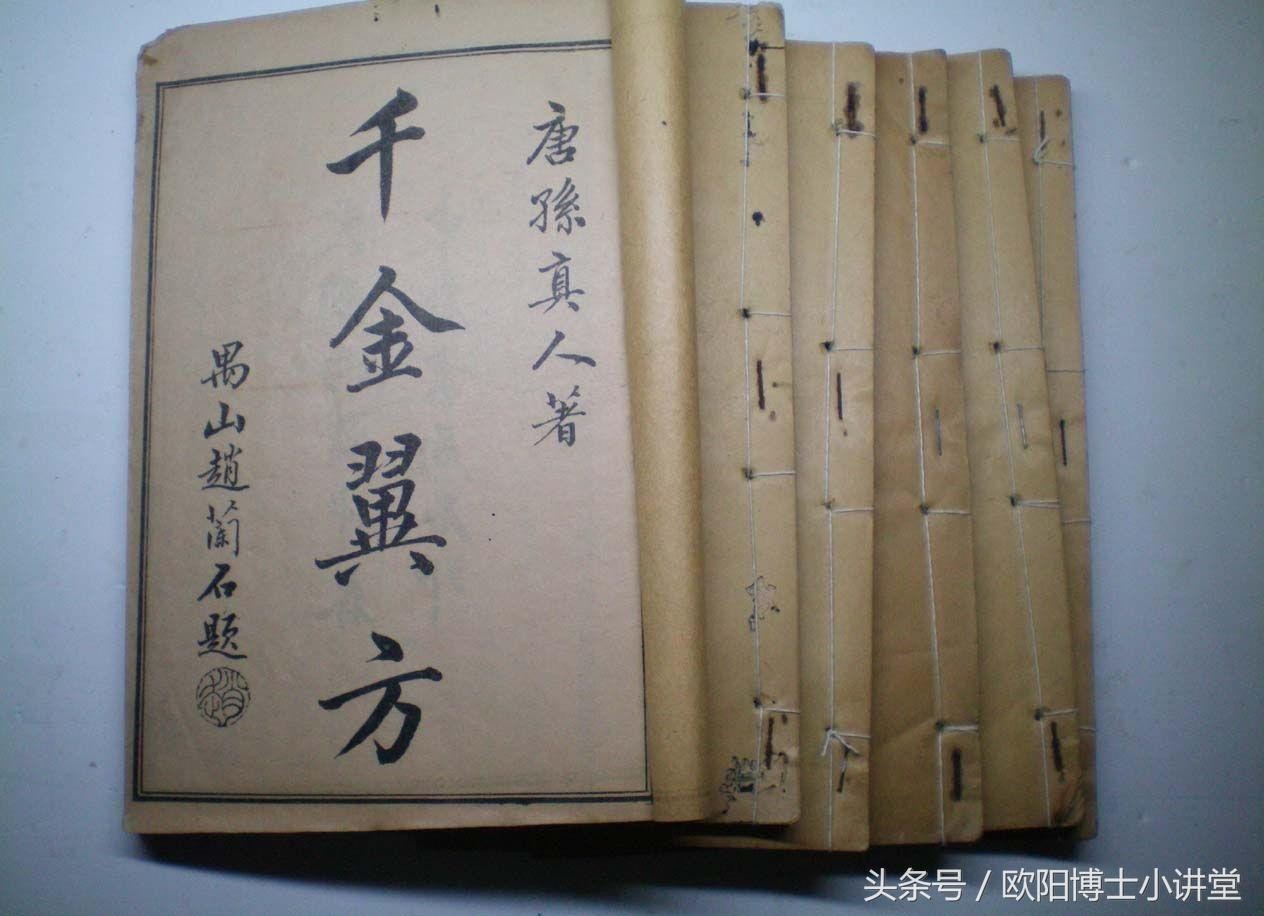 唐孫真人著
千金翼方
禺山趙蘭石題
头条号 / 欧阳博士小讲堂